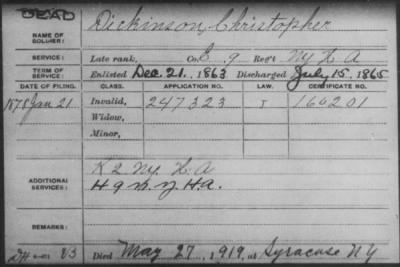 DEAD
NAME OF SOLDIER: Dickinson, Christopher
SERVICE: Late rank, Co. E 9 Reg't NY H A
TERM OF SERVICE: Enlisted Dec. 21, 1863 Discharged July 15, 1865
DATE OF FILING. CLASS. APPLICATION NO. LAW. CERTIFICATE NO.
1878 Jan 21 Invalid, 247323 I 160201
Widow,
Minor,
ADDITIONAL SERVICES: K 2 NY. H. A
H 9 N.Y. H.A.
REMARKS:
Died May 27, 1919, at Syracuse NY